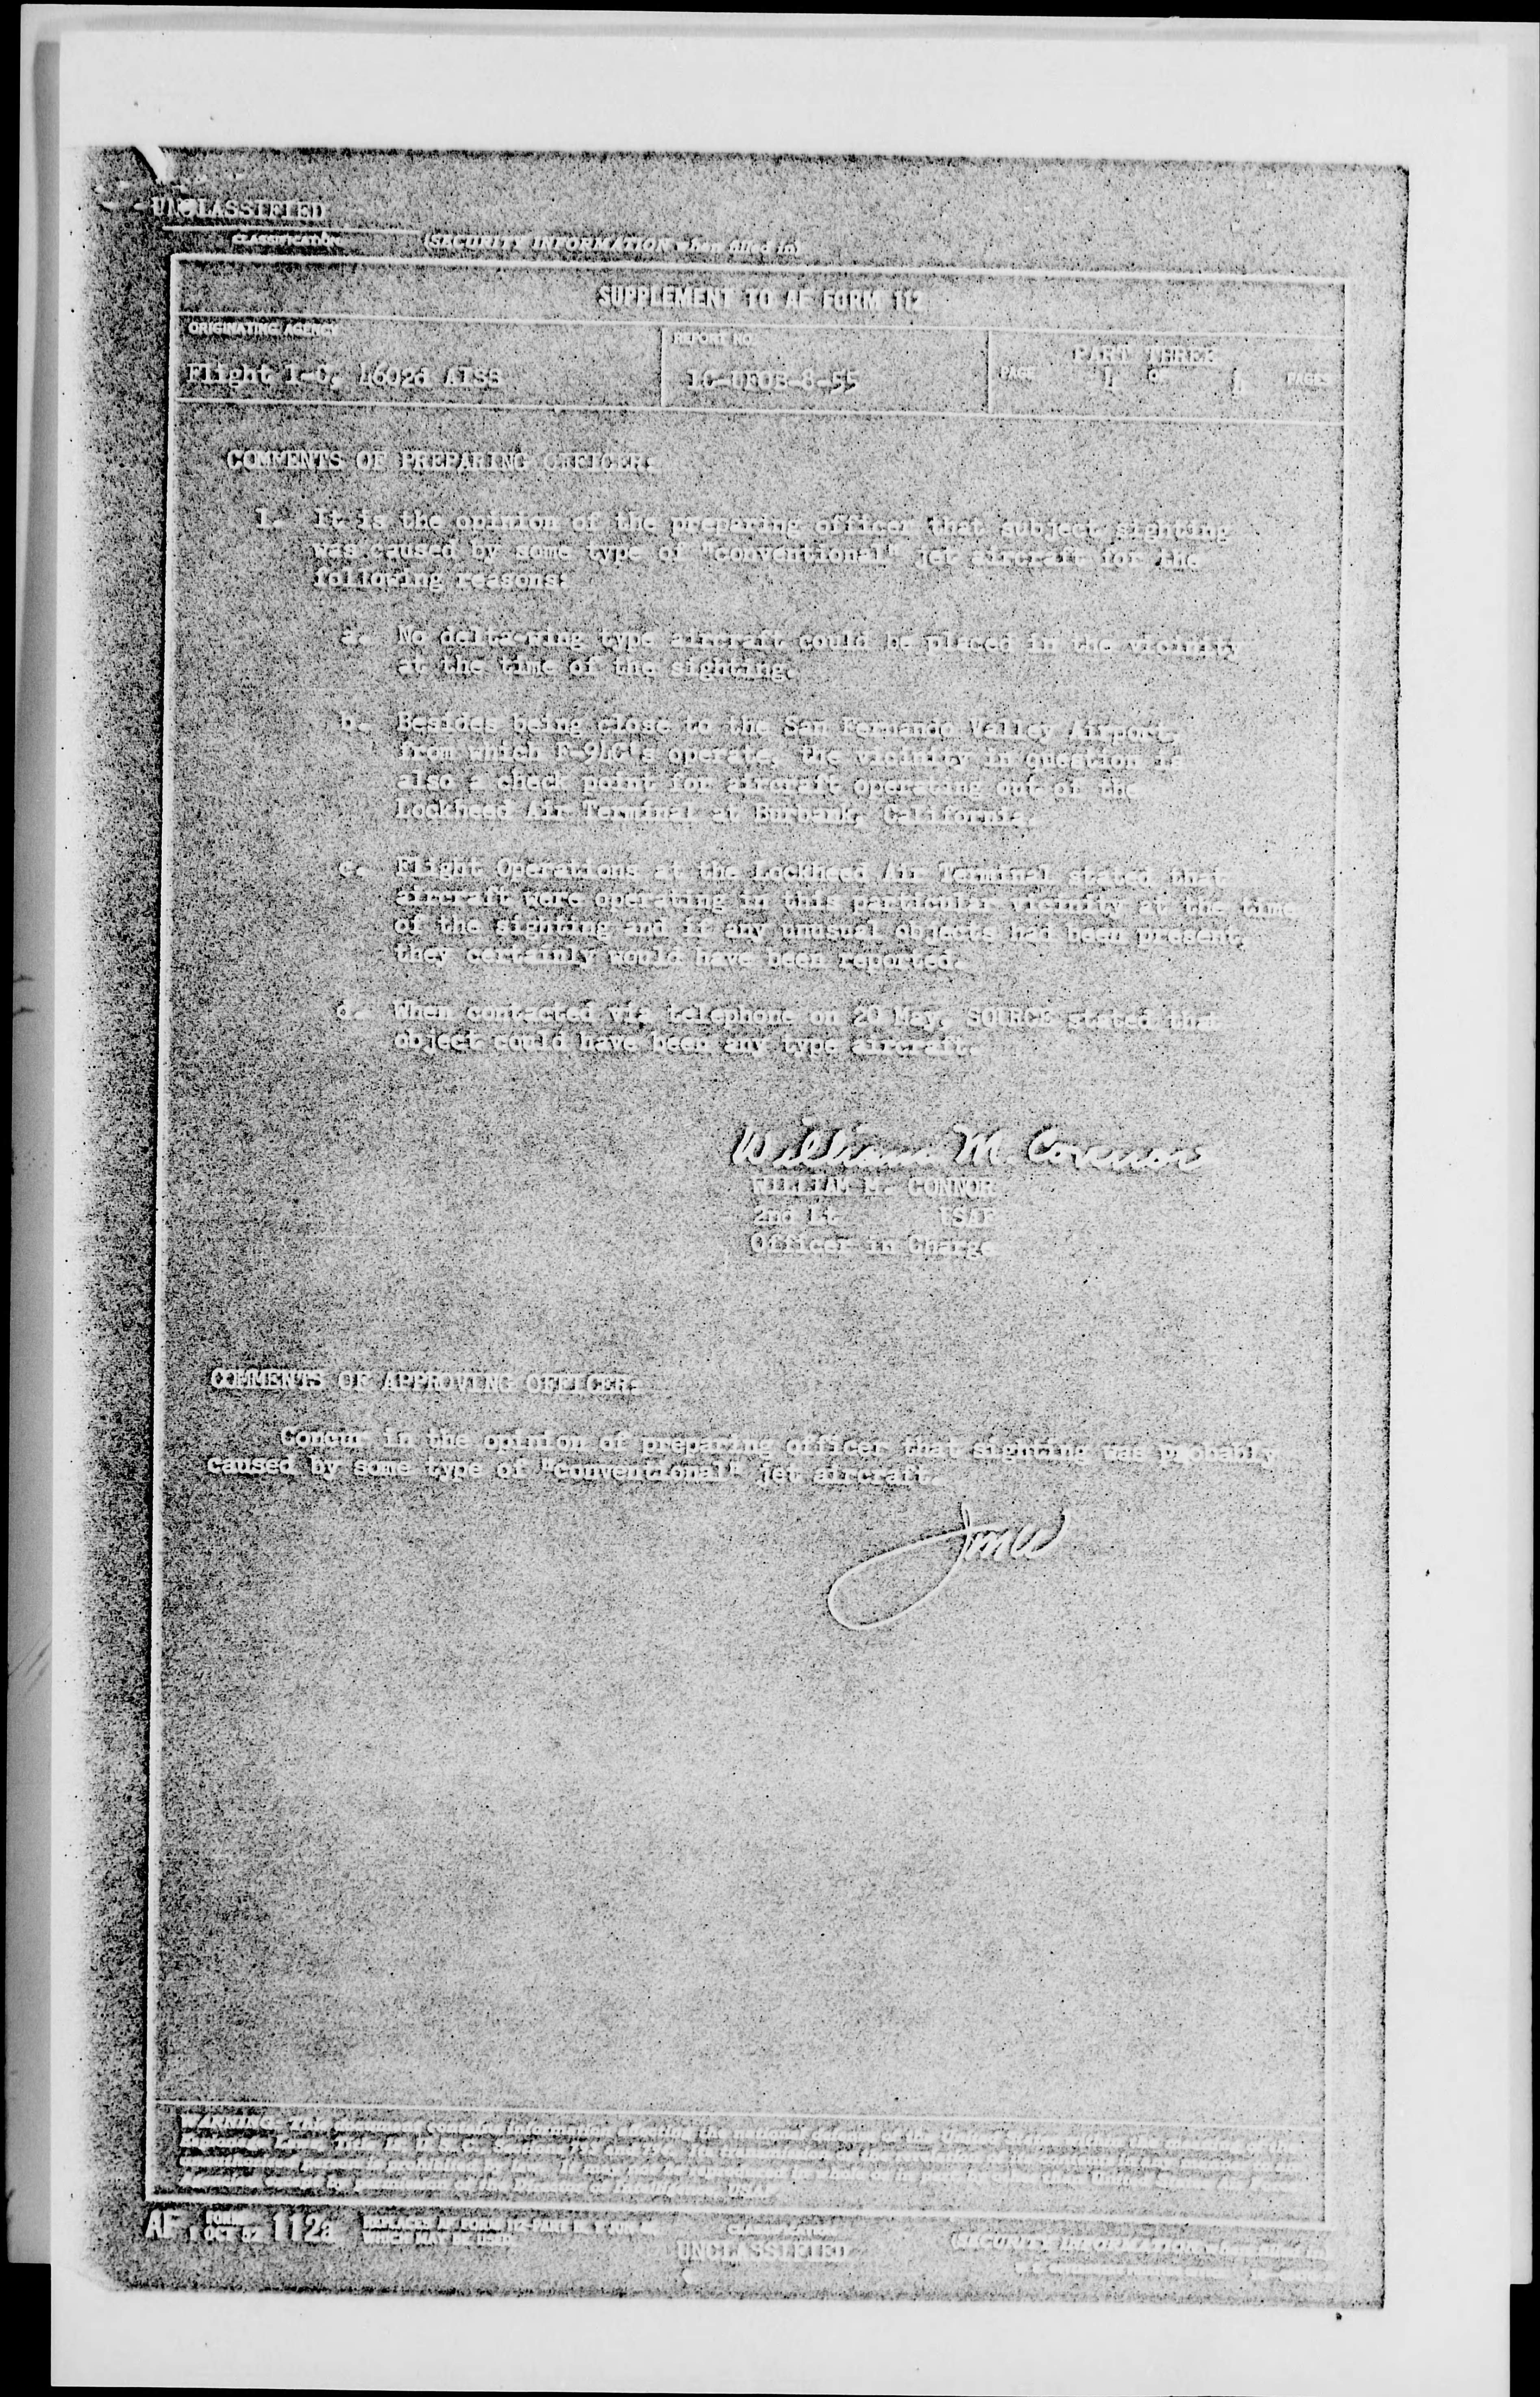 UNCLASSIFIED
CLASSIFICATION (SECURITY INFORMATION when filled in)
SUPPLEMENT TO AF FORM 112
ORIGINATING AGENCY
REPORT NO.
PART THREE
Flight 1-C, 4602d AISS
1C-UFOB-8-55
PAGE 4 OF 4 PAGES
COMMENTS OF PREPARING OFFICER:
1. It is the opinion of the preparing officer that subject sighting
was caused by some type of "conventional" jet aircraft for the
following reasons:
a. No delta-wing type aircraft could be placed in the vicinity
at the time of the sighting.
b. Besides being close to the San Fernando Valley Airport,
from which F-94C's operate, the vicinity in question is
also a check point for aircraft operating out of the
Lockheed Air Terminal at Burbank, California.
c. Flight Operations at the Lockheed Air Terminal stated that
aircraft were operating in this particular vicinity at the time
of the sighting and if any unusual objects had been present,
they certainly would have been reported.
d. When contacted via telephone on 20 May, SOURCE stated that
object could have been any type aircraft.
William M. Connor
WILLIAM M. CONNOR
2nd Lt USAF
Officer in Charge
COMMENTS OF APPROVING OFFICER:
Concur in the opinion of preparing officer that sighting was probably
caused by some type of "conventional" jet aircraft.
JMW
WARNING: This document contains information affecting the national defense of the United States within the meaning of the
Espionage Laws, Title 18, U.S.C., Sections 793 and 794.
AF FORM 1 OCT 52 112a
REPLACES AF FORM 112-PART II, 1 JUN 48,
WHICH MAY BE USED.
CLASSIFICATION
UNCLASSIFIED
(SECURITY INFORMATION when filled in)